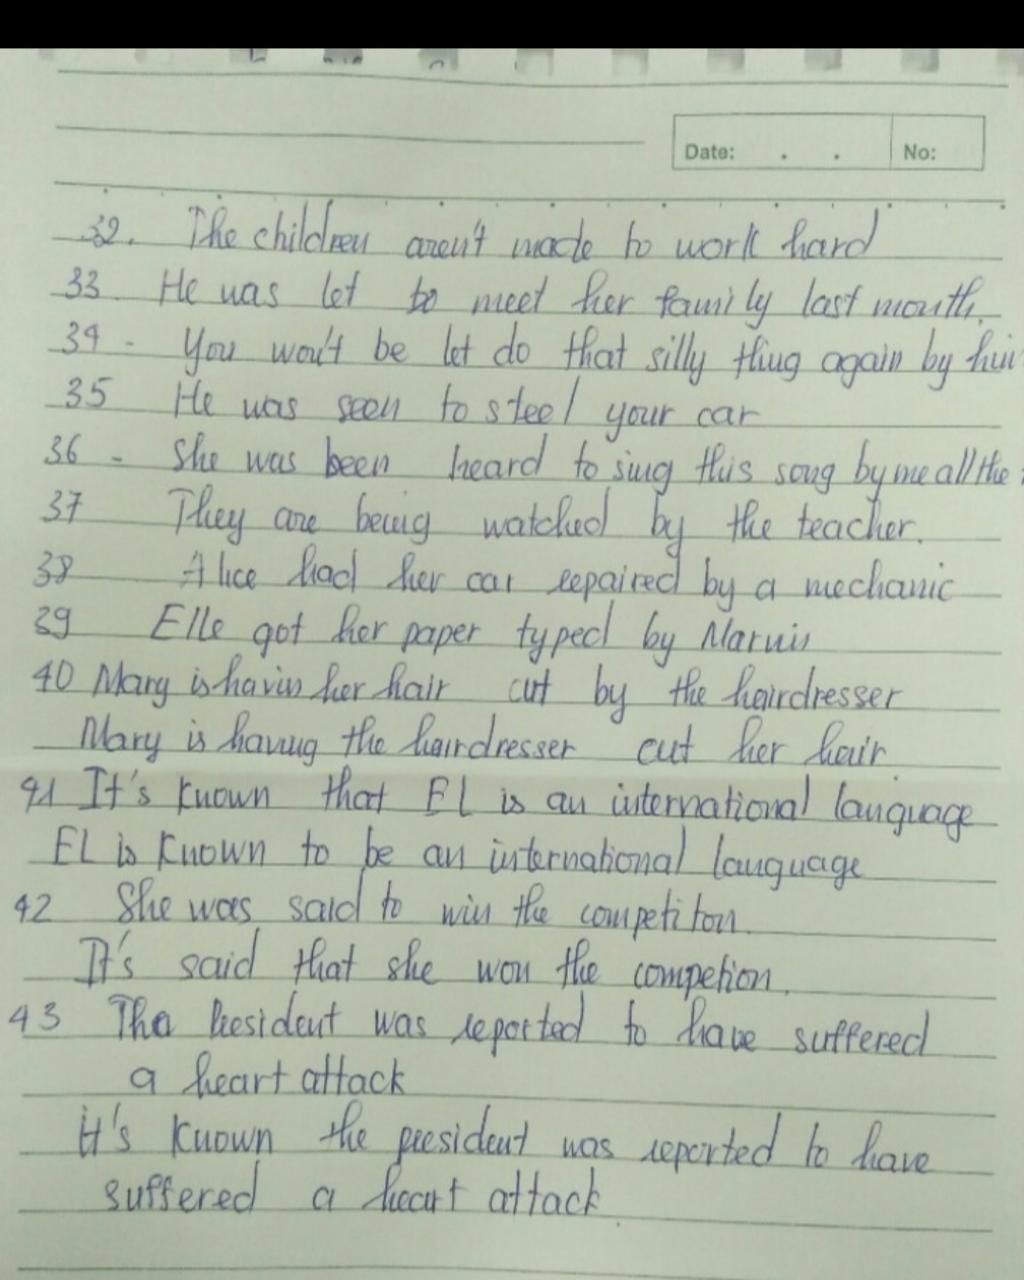 Date: . . No:
32. The children aren't made to work hard
33. He was let to meet her family last month.
34 - You won't be let do that silly thing again by him
35 He was seen to steel your car
36 - She was been heard to sing this song by me all the
37 They are being watched by the teacher.
38 Alice had her car repaired by a mechanic
39 Elle got her paper typed by Marvin
40 Mary is havin her hair cut by the hairdresser
Mary is having the hairdresser cut her hair
41 It's known that EL is an international language
EL is known to be an international language
42 She was said to win the competiton.
It's said that she won the competion.
43 The President was reported to have suffered
a heart attack
it's known the president was reported to have
suffered a heart attack